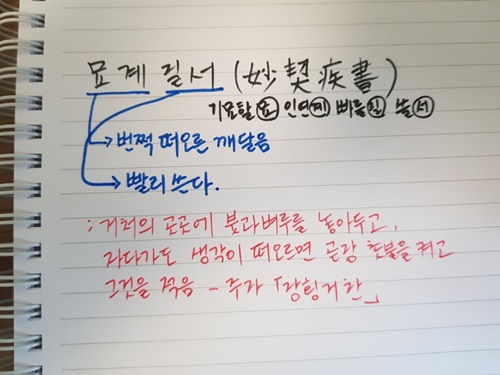 묘계질서(妙契疾書)
기묘할 묘 인연 계 빠를 질 쓸 서
→ 번쩍 떠오른 깨달음
→ 빨리 쓰다.
: 거처의 곳곳에 붓과 벼루를 놓아두고,
자다가도 생각이 떠오르면 곧장 촛불을 켜고
그것을 적음 - 주자 「장횡거찬」